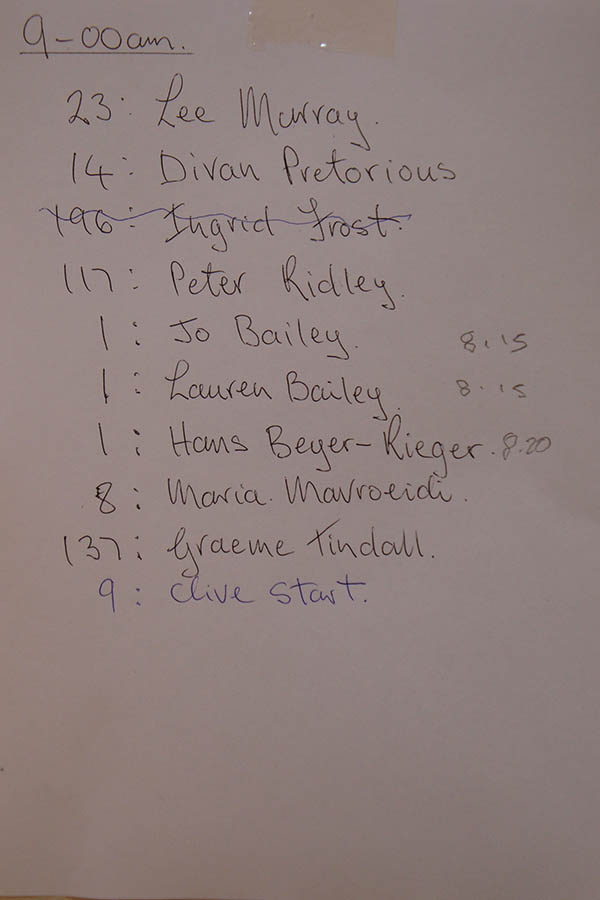 9-00am.
23: Lee Murray.
14: Divan Pretorious
196: Ingrid Frost.
117: Peter Ridley.
1: Jo Bailey. 8.15
1: Lauren Bailey. 8.15
1: Hans Beyer-Rieger. 8.20
8: Maria. Mavroeidi.
137: Graeme Tindall.
9: Clive Start.